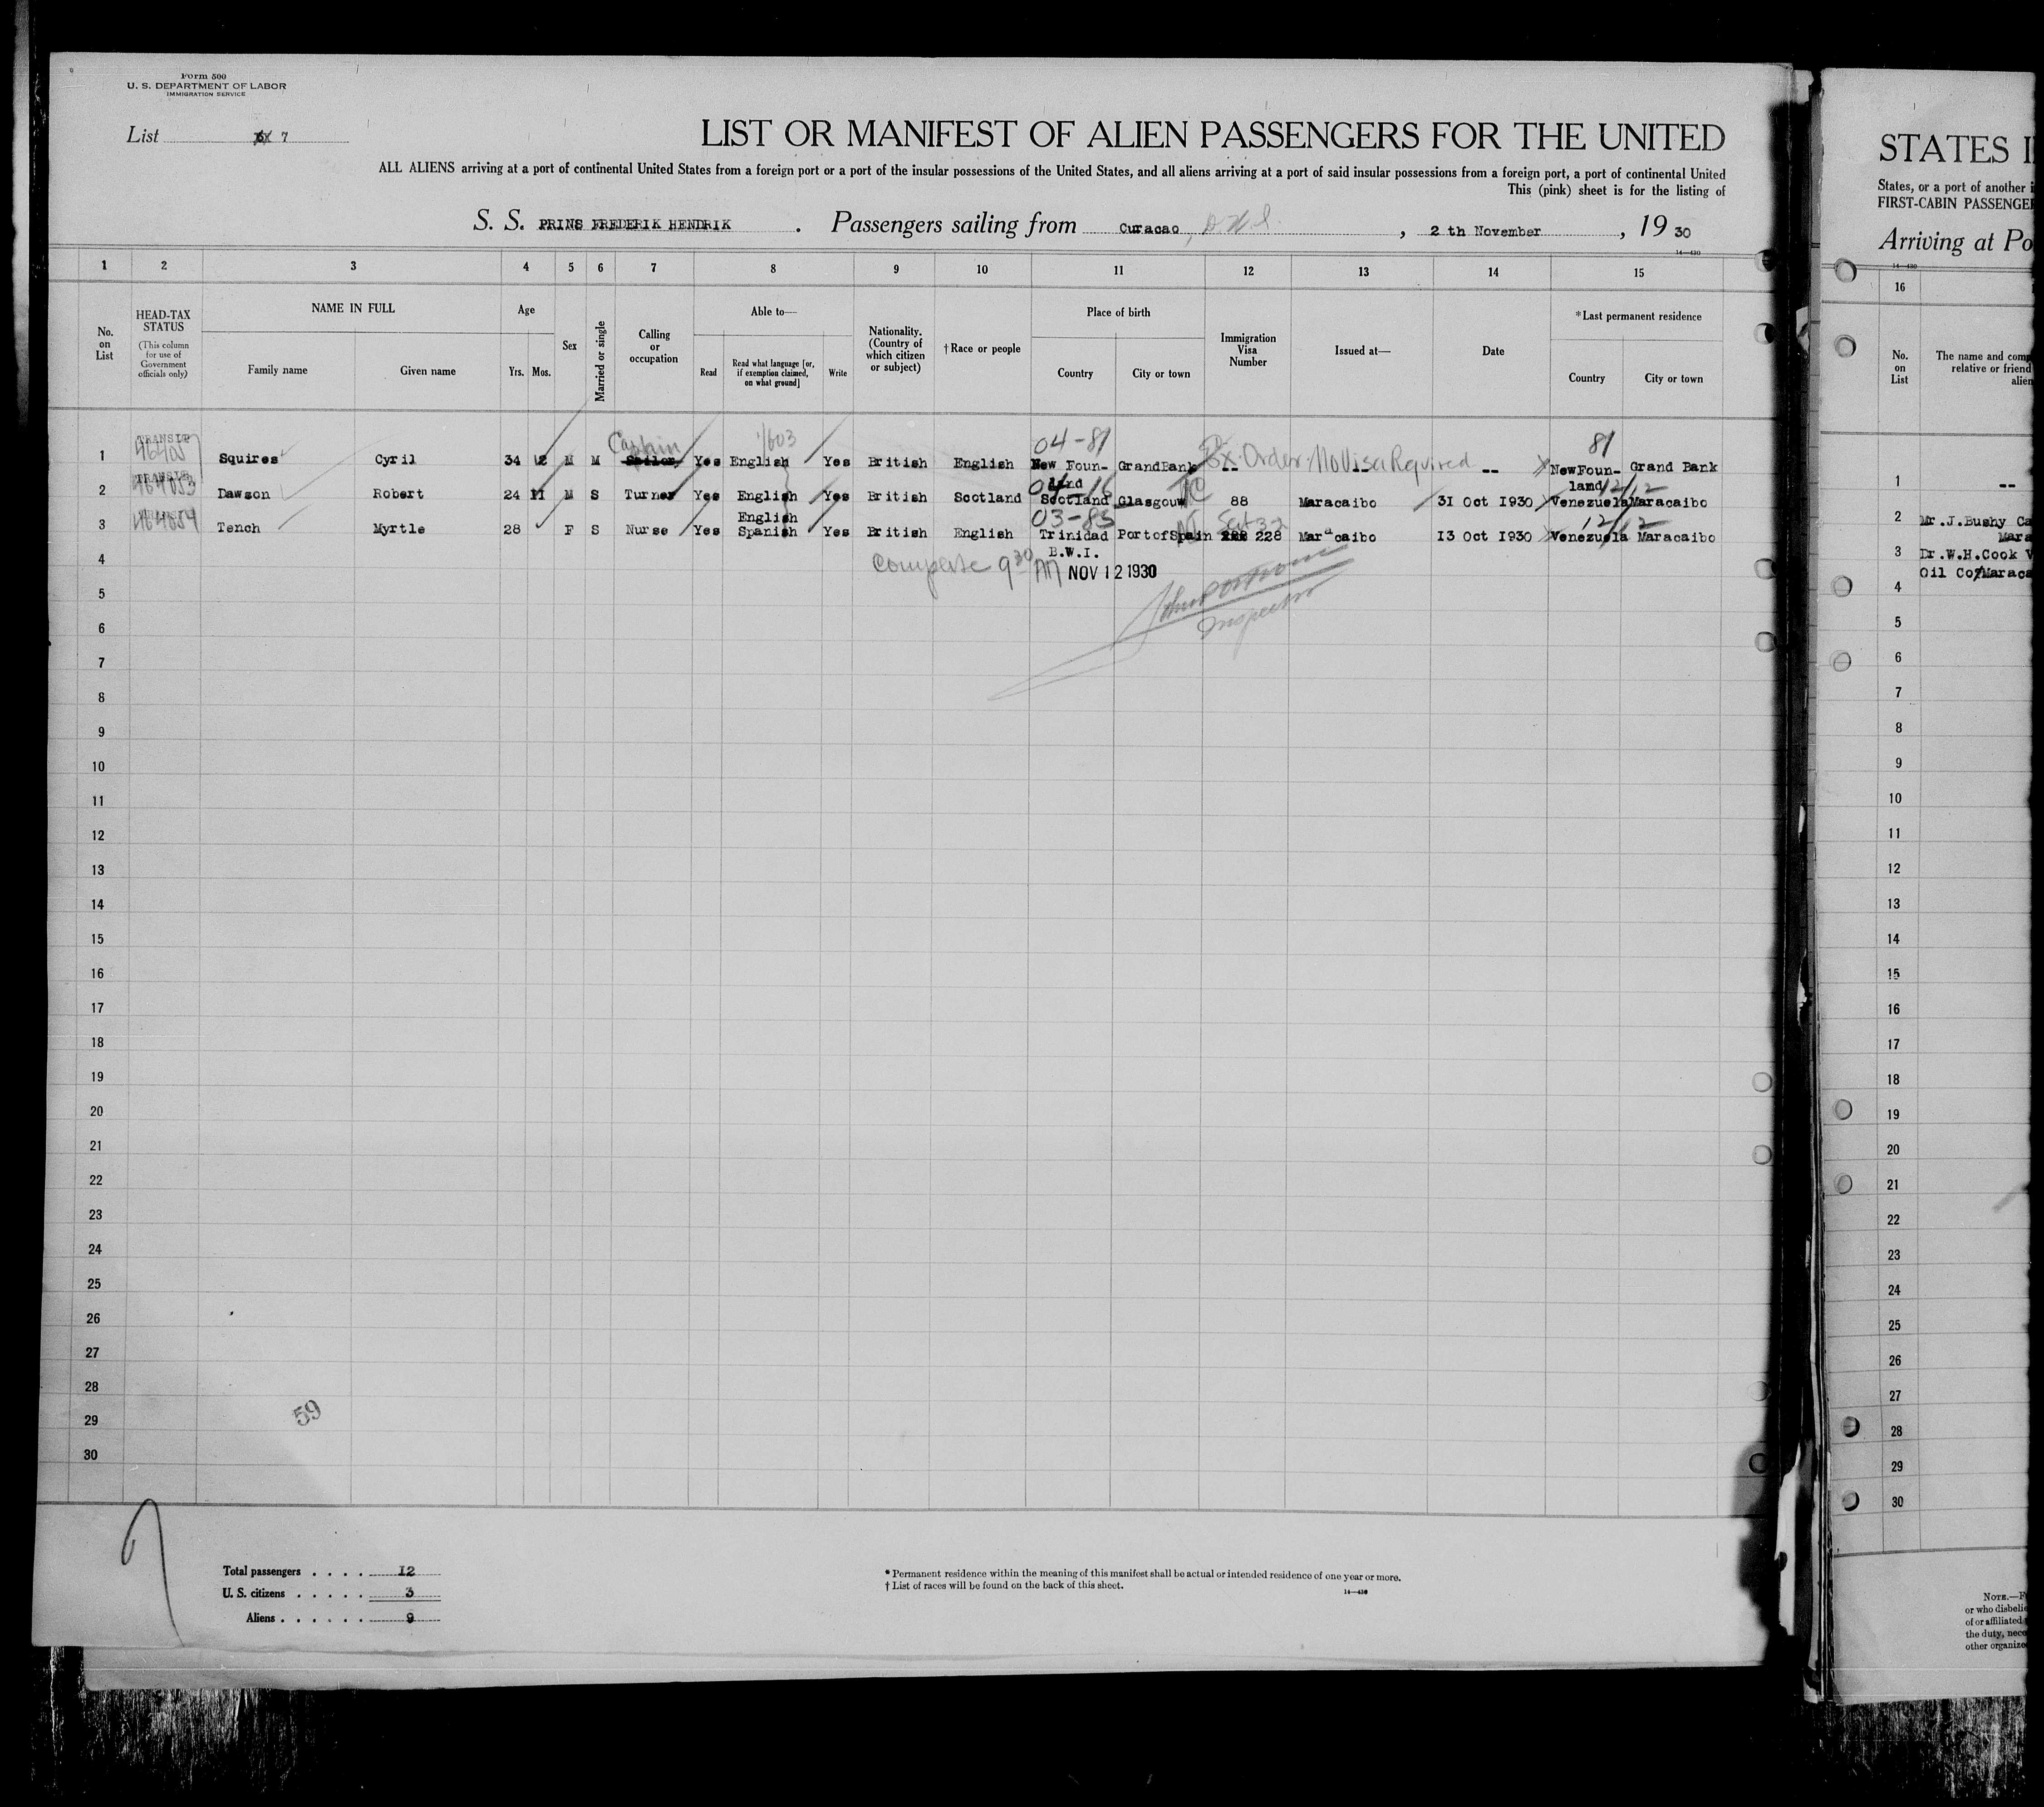 Form 500
U. S. DEPARTMENT OF LABOR
IMMIGRATION SERVICE
List 7
LIST OR MANIFEST OF ALIEN PASSENGERS FOR THE UNITED
ALL ALIENS arriving at a port of continental United States from a foreign port or a port of the insular possessions of the United States, and all aliens arriving at a port of said insular possessions from a foreign port, a port of continental United
This (pink) sheet is for the listing of
S. S. PRINS FREDERIK HENDRIK . Passengers sailing from Curacao, D.W.I. , 2 th November , 19 30
14—430
1 2 3 4 5 6 7 8 9 10 11 12 13 14 15
No. on List
HEAD-TAX STATUS (This column for use of Government officials only)
NAME IN FULL
Family name
Given name
Age
Yrs. Mos.
Sex
Married or single
Calling or occupation
Able to—
Read
Read what language [or, if exemption claimed, on what ground]
Write
Nationality. (Country of which citizen or subject)
†Race or people
Place of birth
Country
City or town
Immigration Visa Number
Issued at—
Date
*Last permanent residence
Country
City or town
Captain 1/603 04-81 81
TRANSIT
1 Squires Cyril 34 M M Sailor Yes English Yes British English New Foun- GrandBank -- Ex. Order. No Visa Required -- -- NewFoun- Grand Bank
land land 12/12
TRANSIT
2 464053 Dawson Robert 24 11 M S Turner Yes English Yes British Scotland 04-16 Scotland Glasgouw 88 Maracaibo 31 Oct 1930 Venezuela Maracaibo
English 03-83 12/12
3 464054 Tench Myrtle 28 F S Nurse Yes Spanish Yes British English Trinidad PortofSpain 228 Maracaibo 13 Oct 1930 Venezuela Maracaibo
B.W.I.
4 Complete 9 30 AM NOV 12 1930
5
Inspector
6
7
8
9
10
11
12
13
14
15
16
17
18
19
20
21
22
23
24
25
26
27
28
59
29
30
Total passengers . . . . 12
U. S. citizens . . . . . 3
Aliens . . . . . . 9
* Permanent residence within the meaning of this manifest shall be actual or intended residence of one year or more.
† List of races will be found on the back of this sheet.
14—430
STATES I
States, or a port of another i
FIRST-CABIN PASSENGER
Arriving at Po
14—430
16
No. on List
The name and comp
relative or friend
alien
1 --
2 Mr.J.Bushy Ca
Mara
3 Dr.W.H.Cook V
Oil Co/Maraca
4
5
6
7
8
9
10
11
12
13
14
15
16
17
18
19
20
21
22
23
24
25
26
27
28
29
30
NOTE.—F
or who disbelie
of or affiliated
the duty, nece
other organize